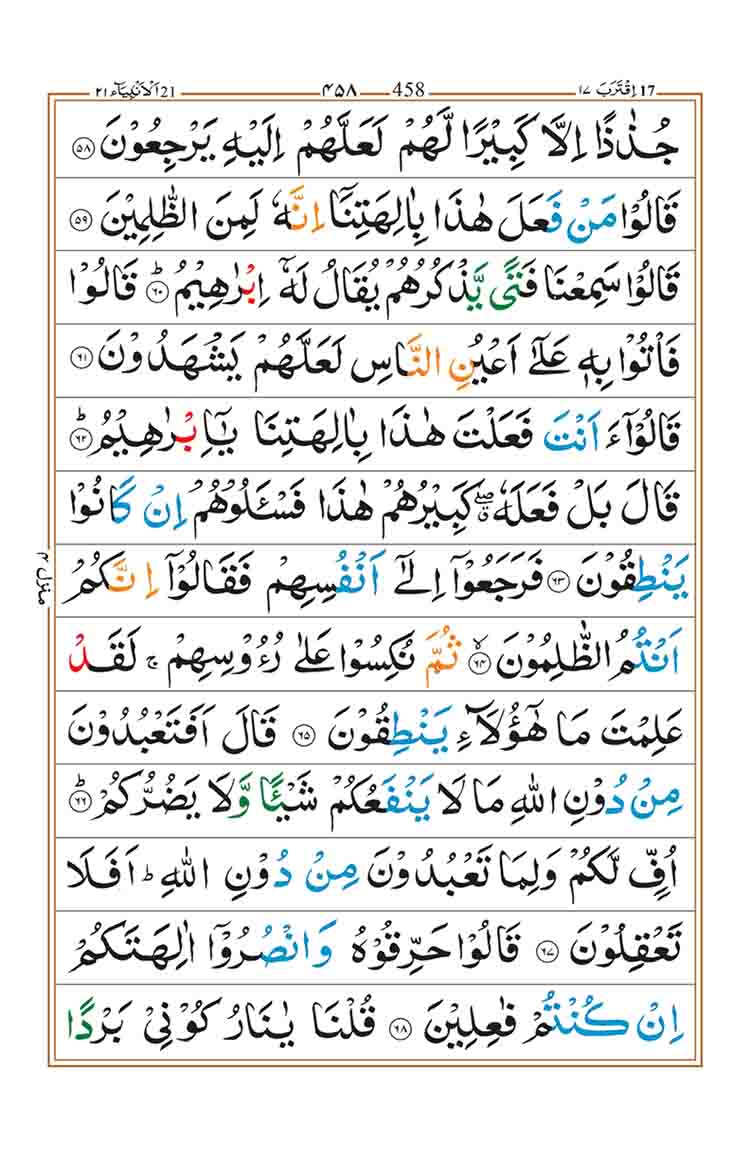 اِقْتَرَبَ ١٧ 17 ۴۵۸ 458 اَلْاَنْۢبِيَآء ٢١ 21
جُذٰذًا اِلَّا كَبِيْرًا لَّهُمْ لَعَلَّهُمْ اِلَيْهِ يَرْجِعُوْنَ ﴿۵۸﴾
قَالُوْا مَنْ فَعَلَ هٰذَا بِاٰلِهَتِنَاۤ اِنَّهٗ لَمِنَ الظّٰلِمِيْنَ ﴿۵۹﴾
قَالُوْا سَمِعْنَا فَتًى يَّذْكُرُهُمْ يُقَالُ لَهٗۤ اِبْرٰهِيْمُ ؕ﴿۶۰﴾ قَالُوْا
فَاْتُوْا بِهٖ عَلٰۤى اَعْيُنِ النَّاسِ لَعَلَّهُمْ يَشْهَدُوْنَ ﴿۶۱﴾
قَالُوْۤا ءَاَنْتَ فَعَلْتَ هٰذَا بِاٰلِهَتِنَا يٰۤاِبْرٰهِيْمُ ؕ﴿۶۲﴾
قَالَ بَلْ فَعَلَهٗ ۖۗ كَبِيْرُهُمْ هٰذَا فَسْـَٔلُوْهُمْ اِنْ كَانُوْا
يَنْطِقُوْنَ ﴿۶۳﴾ فَرَجَعُوْۤا اِلٰۤى اَنْفُسِهِمْ فَقَالُوْۤا اِنَّكُمْ
اَنْتُمُ الظّٰلِمُوْنَ ۙ﴿۶۴﴾ ثُمَّ نُكِسُوْا عَلٰى رُءُوْسِهِمْ ۚ لَقَدْ
عَلِمْتَ مَا هٰۤؤُلَآءِ يَنْطِقُوْنَ ﴿۶۵﴾ قَالَ اَفَتَعْبُدُوْنَ
مِنْ دُوْنِ اللّٰهِ مَا لَا يَنْفَعُكُمْ شَيْـًٔا وَّلَا يَضُرُّكُمْ ؕ﴿۶۶﴾
اُفٍّ لَّكُمْ وَلِمَا تَعْبُدُوْنَ مِنْ دُوْنِ اللّٰهِ ؕ اَفَلَا
تَعْقِلُوْنَ ﴿۶۷﴾ قَالُوْا حَرِّقُوْهُ وَانْصُرُوْۤا اٰلِهَتَكُمْ
اِنْ كُنْتُمْ فٰعِلِيْنَ ﴿۶۸﴾ قُلْنَا يٰنَارُ كُوْنِيْ بَرْدًا
منزل ۴